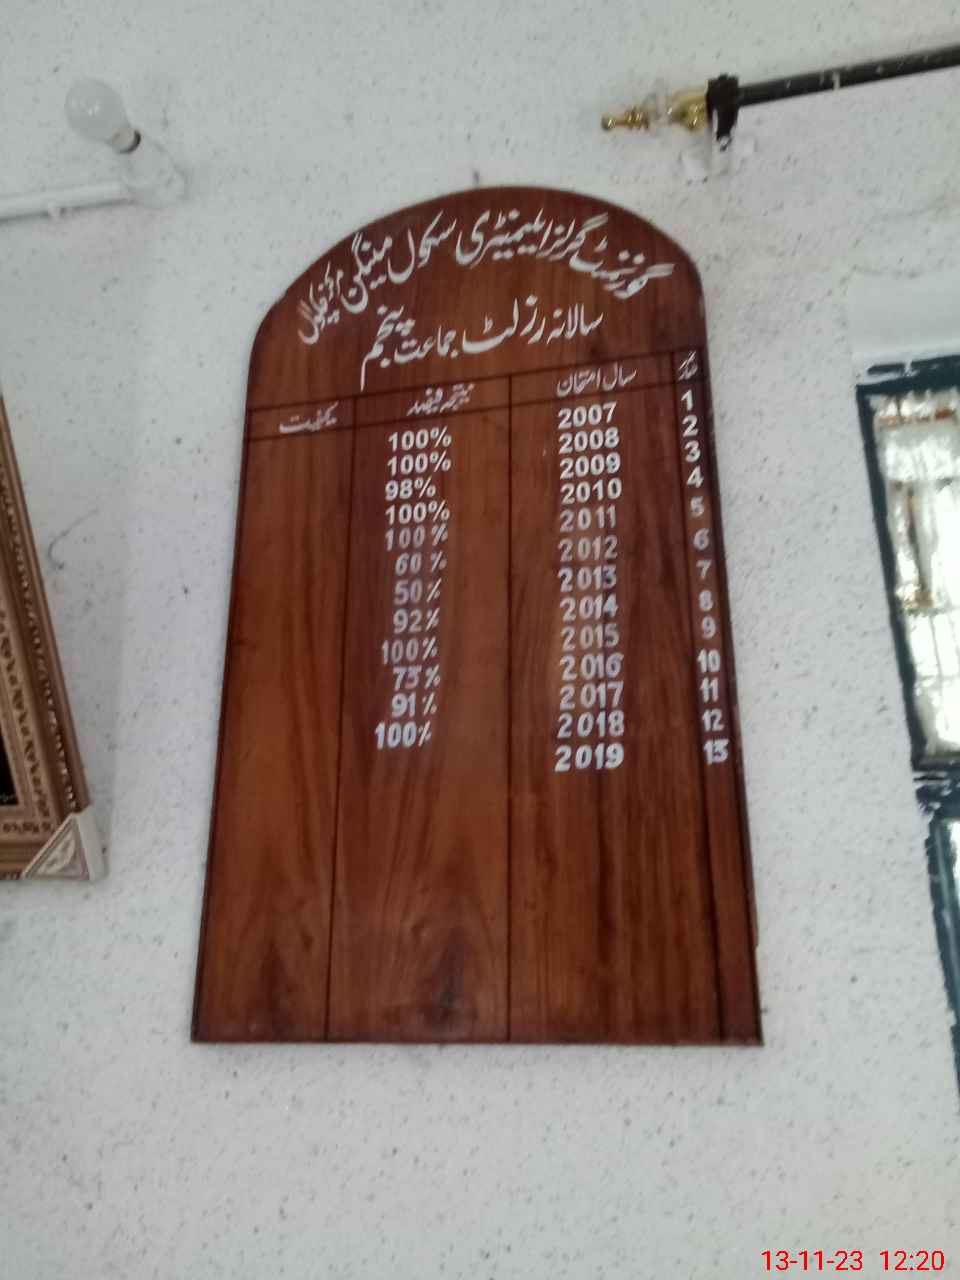 گورنمنٹ گرلز ایلیمنٹری سکول مینگن مرکز
سالانہ رزلٹ جماعت پنجم
سال امتحان نتیجہ فیصد کیفیت
1 2007 100%
2 2008 100%
3 2009 98%
4 2010 100%
5 2011 100%
6 2012 60%
7 2013 50%
8 2014 92%
9 2015 100%
10 2016 73%
11 2017 91%
12 2018 100%
13 2019
13-11-23 12:20